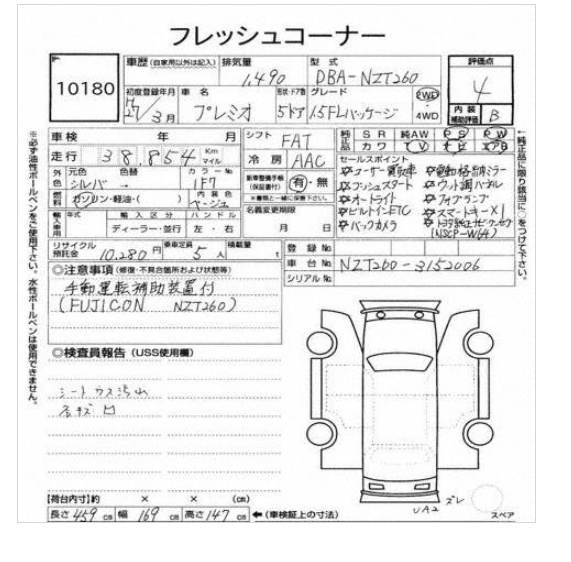 フレッシュコーナー
10180
車歴 (自家用以外は記入) 排気量 型式
1,490 DBA-NZT260
評価点
4
内装補助評価 B
初度登録年月 車名 形状・ドア数 グレード
27/3月 プレミオ 5ドア 1.5FLパッケージ
2WD
4WD
車検 年 月
シフト FAT
純正品 SR 純AW PS PW
カワ TV ナビ エアB
走行 38,854 Km マイル
冷房 AAC
セールスポイント
外色 元色 シルバー → 色替 カラーNo 1F7
新車整備手帳(保証書付) 有・無
※書類と一緒に保管下さい。
☆ユーザー買取車 ☆電動格納ミラー
☆プッシュスタート ☆ウッド調パネル
燃料 ガソリン・軽油・( ) 内装色 ベージュ
名義変更期限
月 日
☆オートライト ☆フォグランプ
☆ビルトインETC ☆スマートキー×1
☆バックカメラ ☆トヨタ純正ナビワンセグ
(NSCP-W64)
輸入車用 年式 輸入区分 ハンドル
ディーラー・並行 左・右
リサイクル預託金 10,280円 乗車定員 5人 積載量 t
登録No.
車台No. NZT260-3152006
シリアルNo.
◎注意事項 (修復・不具合箇所および状態等)
手動運転補助装置付
(FUJICON NZT260)
◎検査員報告 (USS使用欄)
シートウス汚れ
各キズ凹
【荷台内寸】約 × × (cm)
長さ 459 cm 幅 169 cm 高さ 147 cm ←(車検証上の寸法)
UA2 ズレ
スペア
※必ず油性ボールペンをご使用下さい。水性ボールペンは使用できません。
←純正品に限り該当に○をつけて下さい。